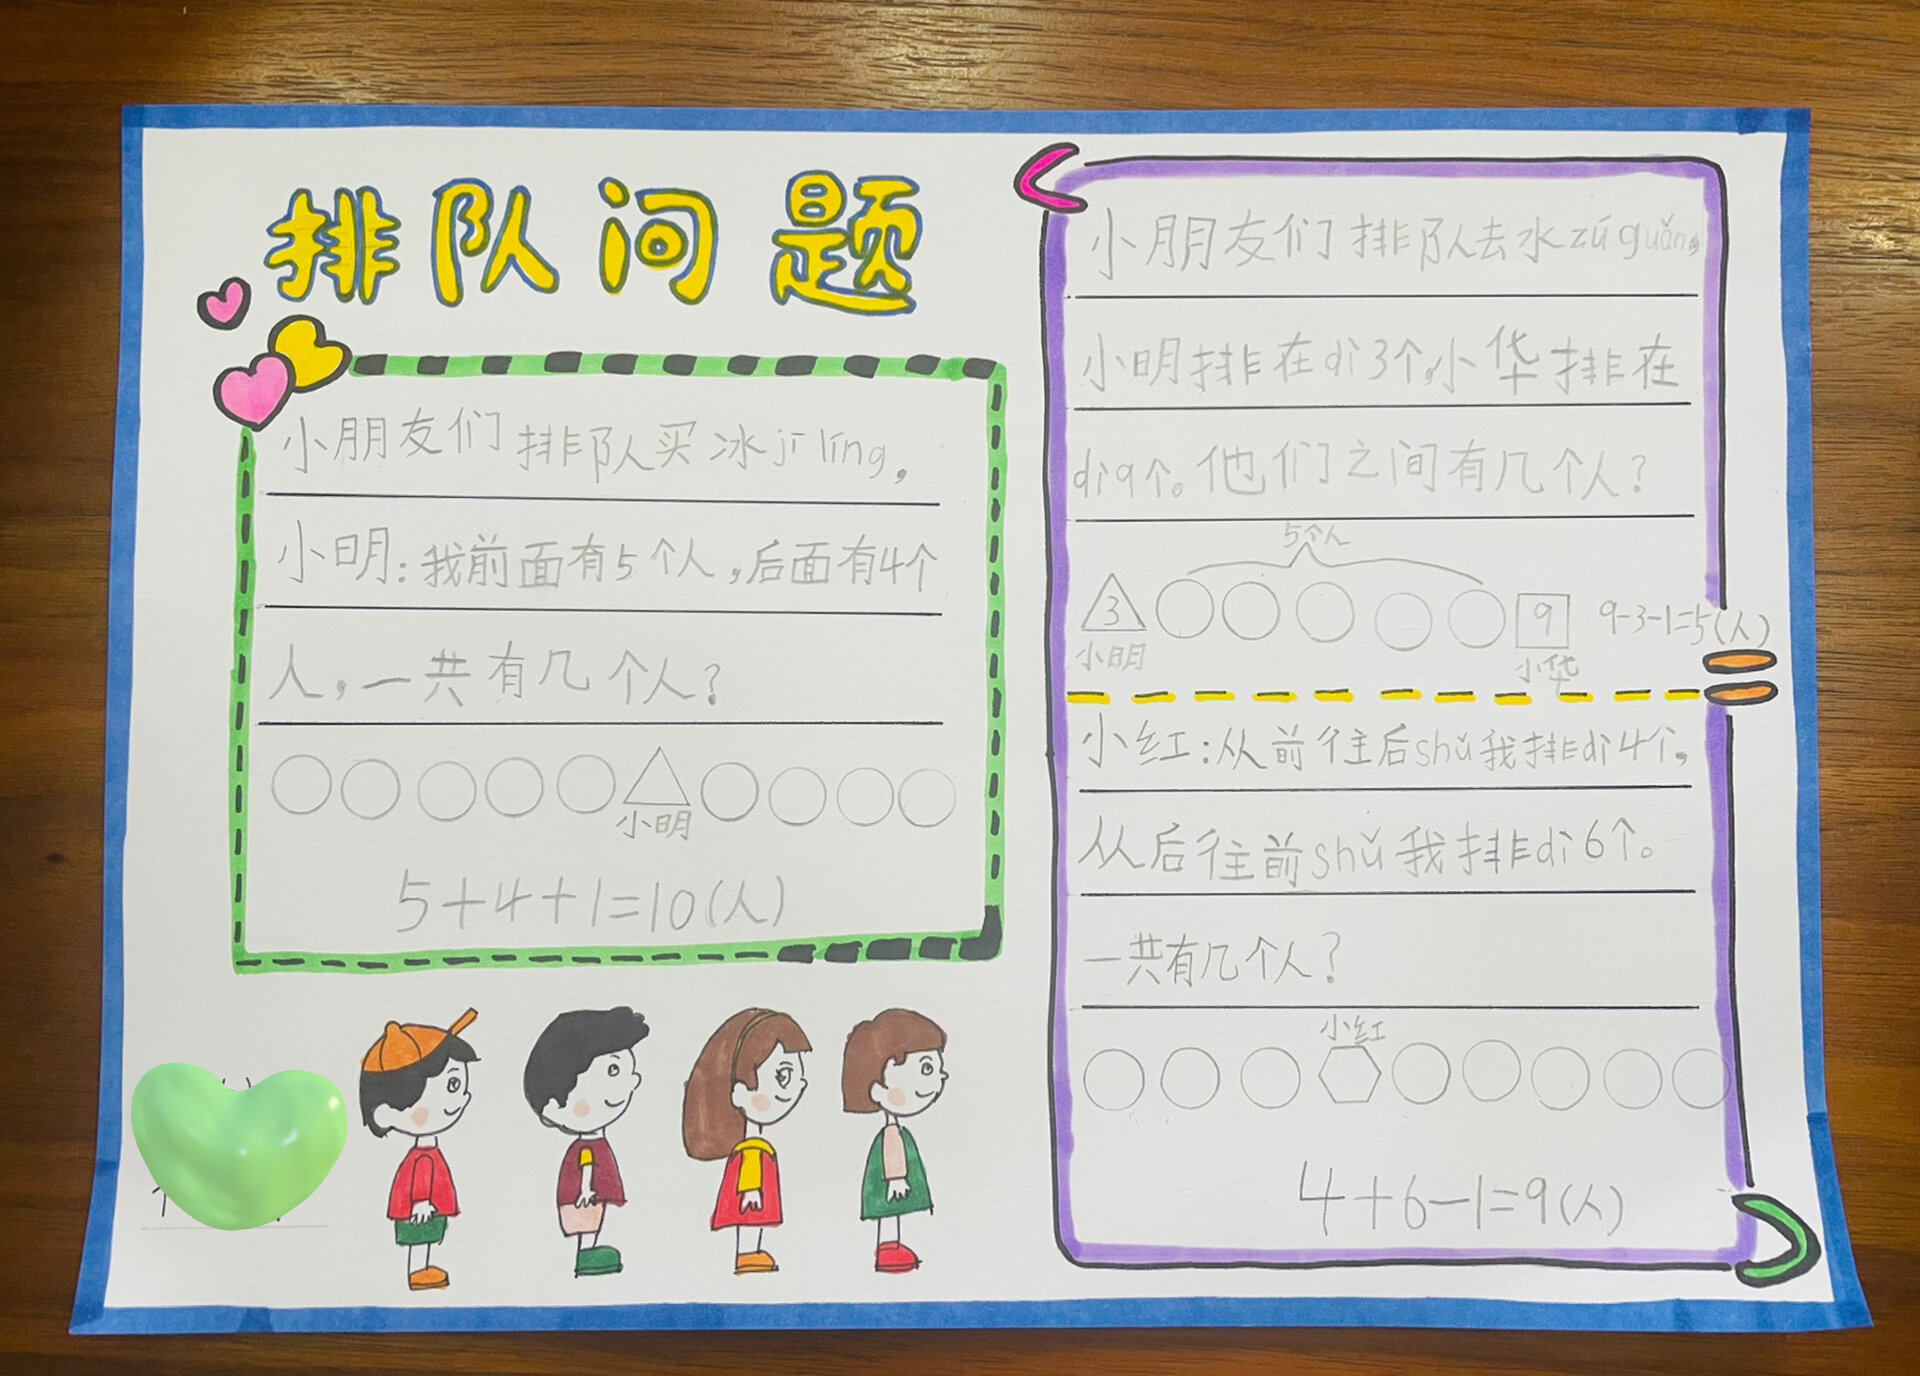 排队问题
小朋友们排队买冰jī líng，
小明：我前面有5个人，后面有4个
人，一共有几个人？
小明
5+4+1=10(人)
小朋友们排队去水zú guǎn，
小明排在dì3个，小华排在
dì9个。他们之间有几个人？
5个人
3
9
9-3-1=5(人)
小明
小华
小红：从前往后shǔ我排dì4个，
从后往前shǔ我排dì6个。
一共有几个人？
小红
4+6-1=9(人)